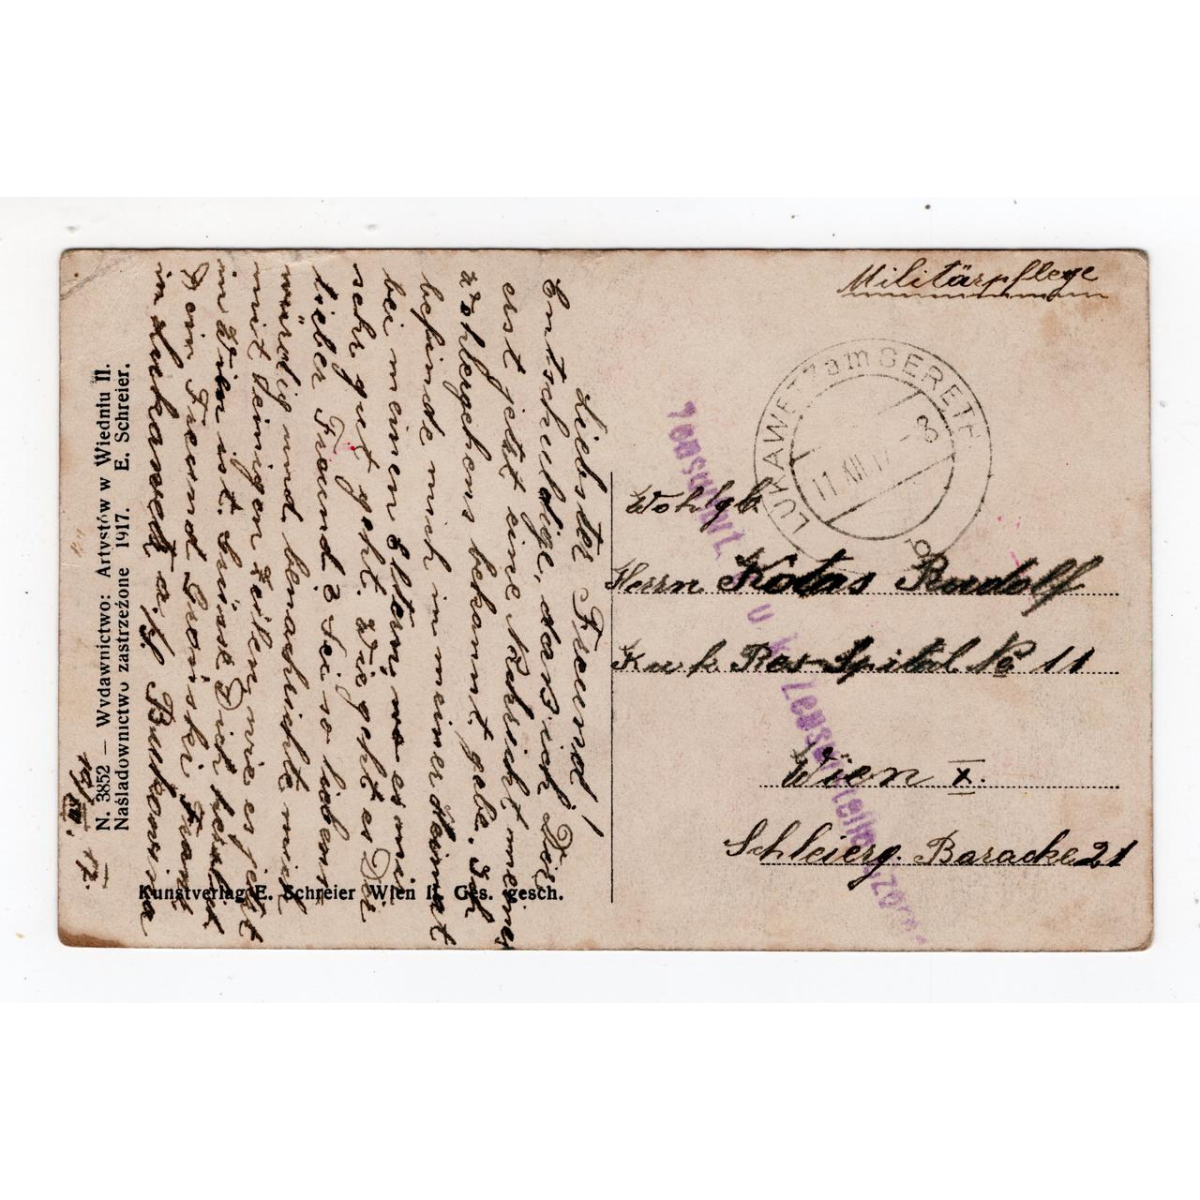 Militärpflege
LUKAWETZ am SERETH
11 XII 17 - 8
b
Zensuriert.
Wohlgb.
Herrn Kotas Rudolf
K u k Res-Spital № 11
Wien X.
Schleierg. Baracke 21
Liebster Freund!
Entschuldige, dass ich Dir
erst jetzt eine Nachricht meines
Wohlergehens bekannt gebe. Ich
befinde mich in meiner Heimat
bei meinen Eltern, wo es mir
sehr gut geht. Wie geht es Dir
lieber Freund? Sei so lieben
würdig und benachrichte mich
mit Deinigen Zeilen, wie es jetzt
in Wien ist. Grüsse Dich herzlichst
Dein Freund Gronski Franz
in Lukawetz a/S Bukowina
10/XII. 17.
N. 3852 — Wydawnictwo: Artystów w Wiedniu II.
Naśladownictwo zastrzeżone 1917. E. Schreier.
Kunstverlag E. Schreier Wien II. Ges. gesch.